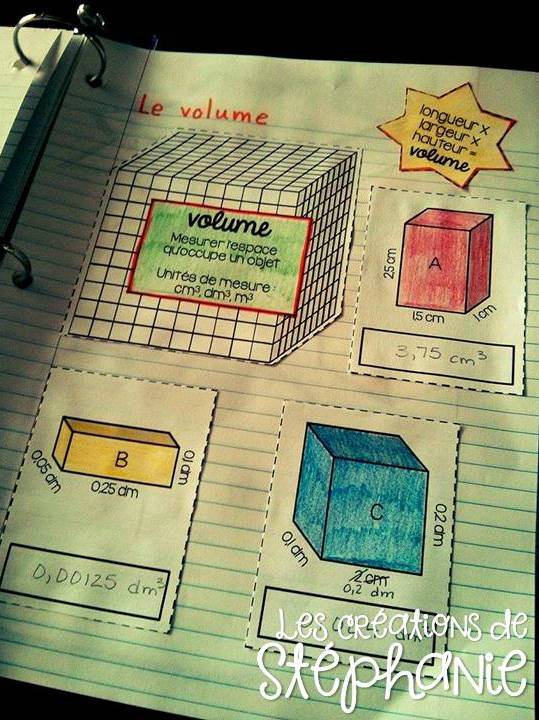 Le volume
longueur x
largeur x
hauteur =
volume
volume
Mesurer l'espace
qu'occupe un objet
Unités de mesure :
cm³, dm³, m³
A
2,5 cm
1,5 cm
1 cm
3,75 cm³
B
0,05 dm
0,25 dm
0,1 dm
0,00125 dm³
C
0,1 dm
2 cm
0,2 dm
0,2 dm
Les créations de
Stéphanie